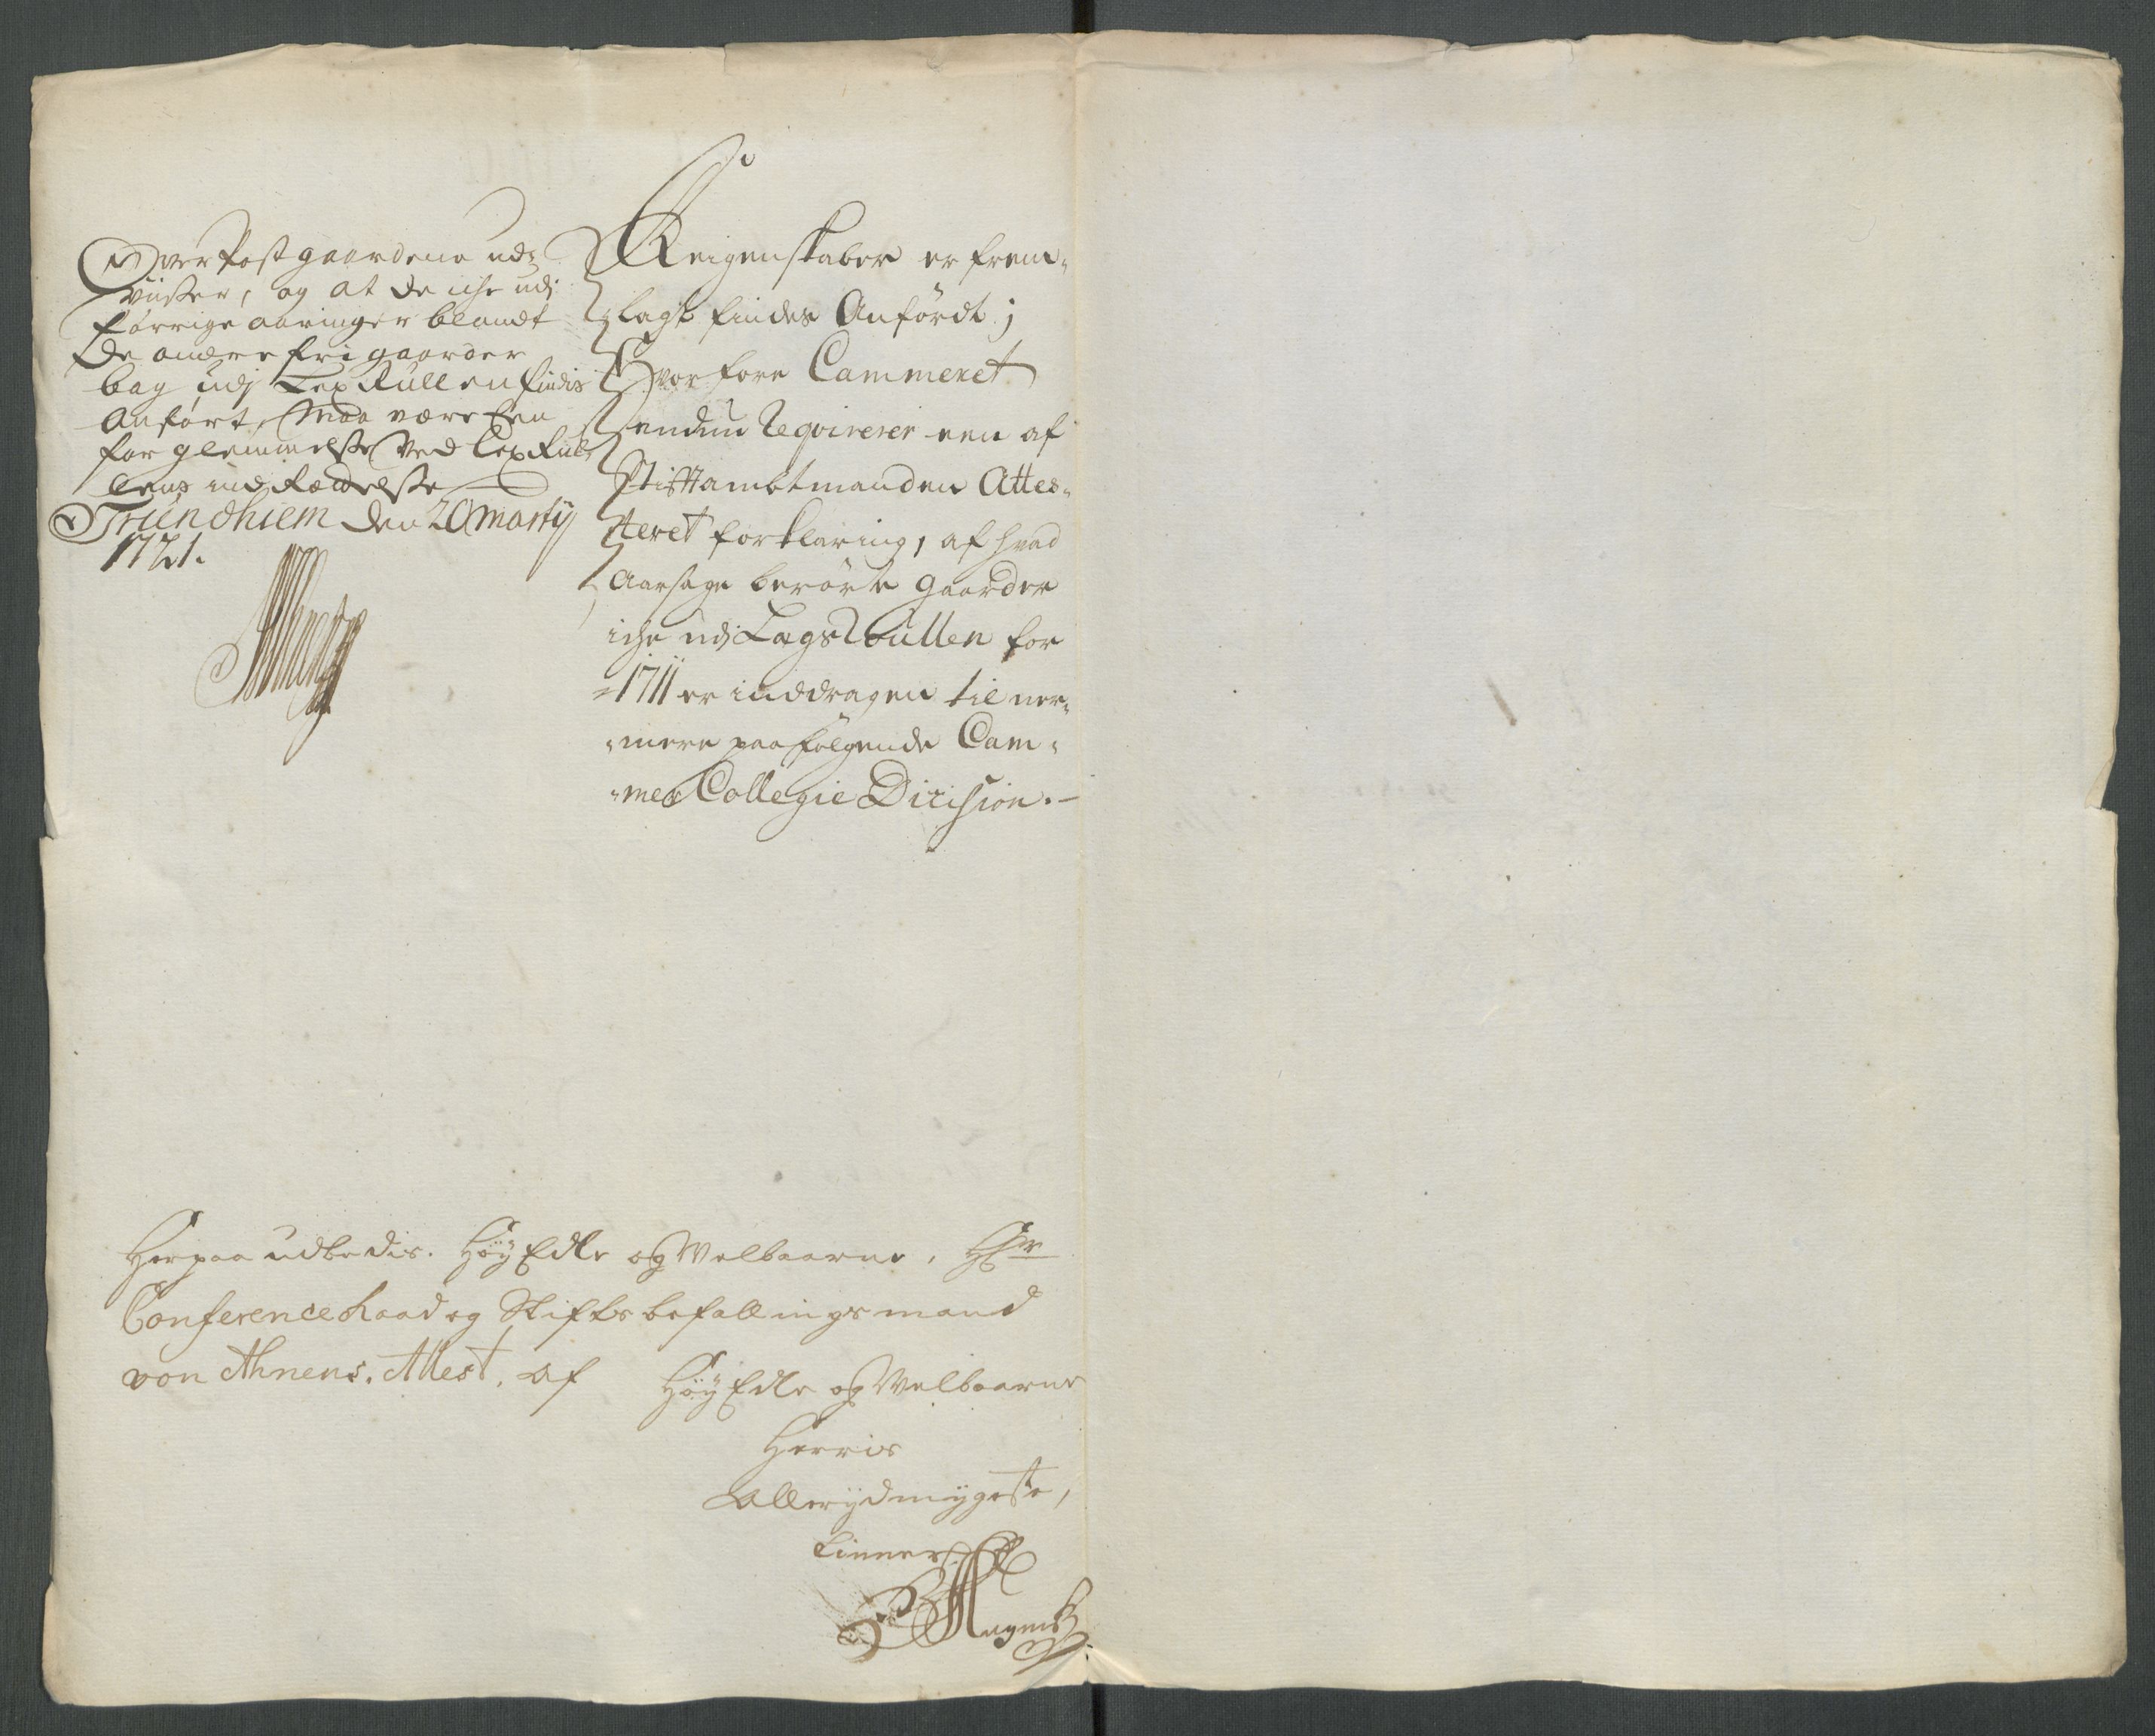 Over Postgaardene ud-
viisser, og at de iche udj
førrige aaringer blandt
De andre frigaarder
bag udj Lex Rullen findis
Anført, Maa være Een
forglemmelsse Ved Lex Rul-
lens indRettelsse
Trundhiem den 20 Martij
1721.
Reigenskaber er frem-
lagt findes Anfördt;
Hvorfore Cammeret
endnu Reqvirerer een af
Stiftambtmanden Attes-
teret forklaring, af hvad
Aarsage berörte Gaarder
iche udj Lægs Rullen for
1711 er inddragen til ner-
mere paafölgende Cam-
mer Collegie Dicision.
Herpaa udbedis. HøyEdle og Welbaarne, Hr
Conference Raad og Stifts befallingsmand
von Ahnens. Attest, af
HøyEdle og Welbaarne
Herris
Allerydmygeste,
tienner